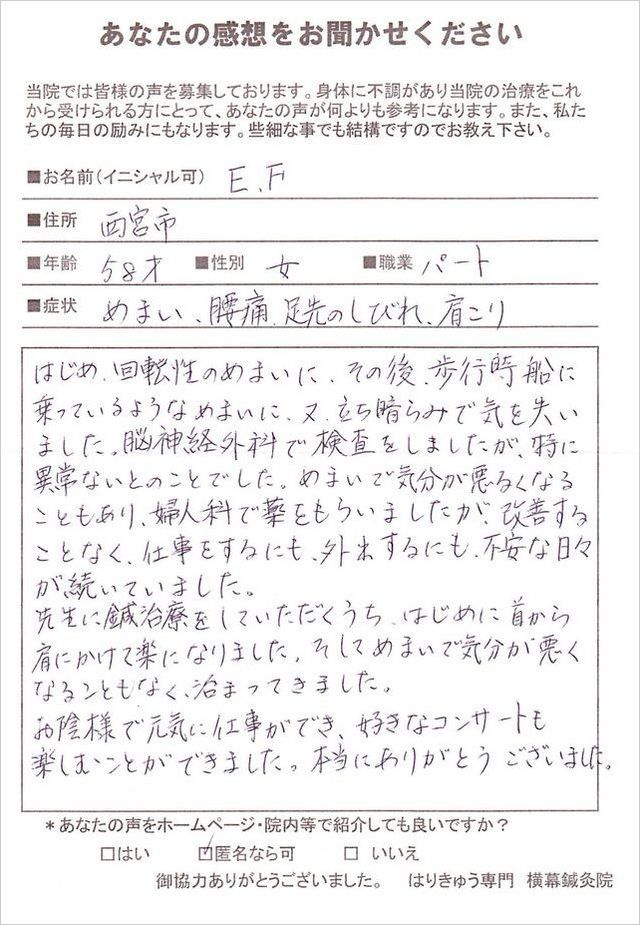 あなたの感想をお聞かせください
当院では皆様の声を募集しております。身体に不調があり当院の治療をこれ
から受けられる方にとって、あなたの声が何よりも参考になります。また、私た
ちの毎日の励みにもなります。些細な事でも結構ですのでお教え下さい。
■お名前(イニシャル可) E.F
■住所 西宮市
■年齢 58才 ■性別 女 ■職業 パート
■症状 めまい、腰痛、足先のしびれ、肩こり
はじめ、回転性のめまいに、その後、歩行時船に
乗っているようなめまいに、又、立ち暗らみで気を失い
ました。脳神経外科で検査をしましたが、特に
異常ないとのことでした。めまいで気分が悪るくなる
こともあり、婦人科で薬をもらいましたが、改善する
ことなく、仕事をするにも、外出するにも、不安な日々
が続いていました。
先生に鍼治療をしていただくうち、はじめに首から
肩にかけて楽になりました。そしてめまいで気分が悪く
なることもなく、治まってきました。
お陰様で元気に仕事ができ、好きなコンサートも
楽しむことができました。本当にありがとうございました。
*あなたの声をホームページ・院内等で紹介しても良いですか?
□はい ☑匿名なら可 □ いいえ
御協力ありがとうございました。 はりきゅう専門 横幕鍼灸院